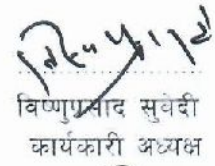 विष्णुप्रसाद सुवेदी
कार्यकारी अध्यक्ष